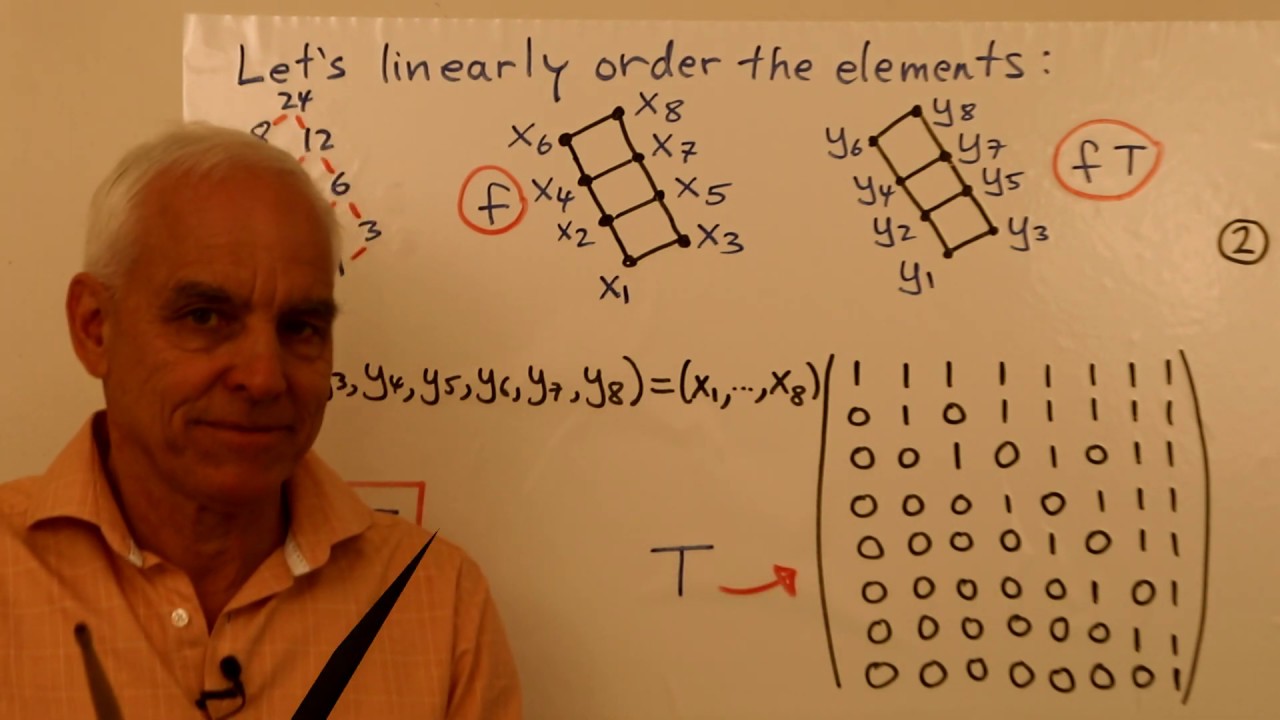 Let's linearly order the elements:
24
8 12
6
3
1
f
x8
x6 x7
x4 x5
x2 x3
x1
y8
y6 y7
y4 y5
y2 y3
y1
f T
2
3, y4, y5, y6, y7, y8) = (x1, ..., x8)
1 1 1 1 1 1 1 1
0 1 0 1 1 1 1 1
0 0 1 0 1 0 1 1
0 0 0 1 0 1 1 1
0 0 0 0 1 0 1 1
0 0 0 0 0 1 0 1
0 0 0 0 0 0 1 1
0 0 0 0 0 0 0 1
T →